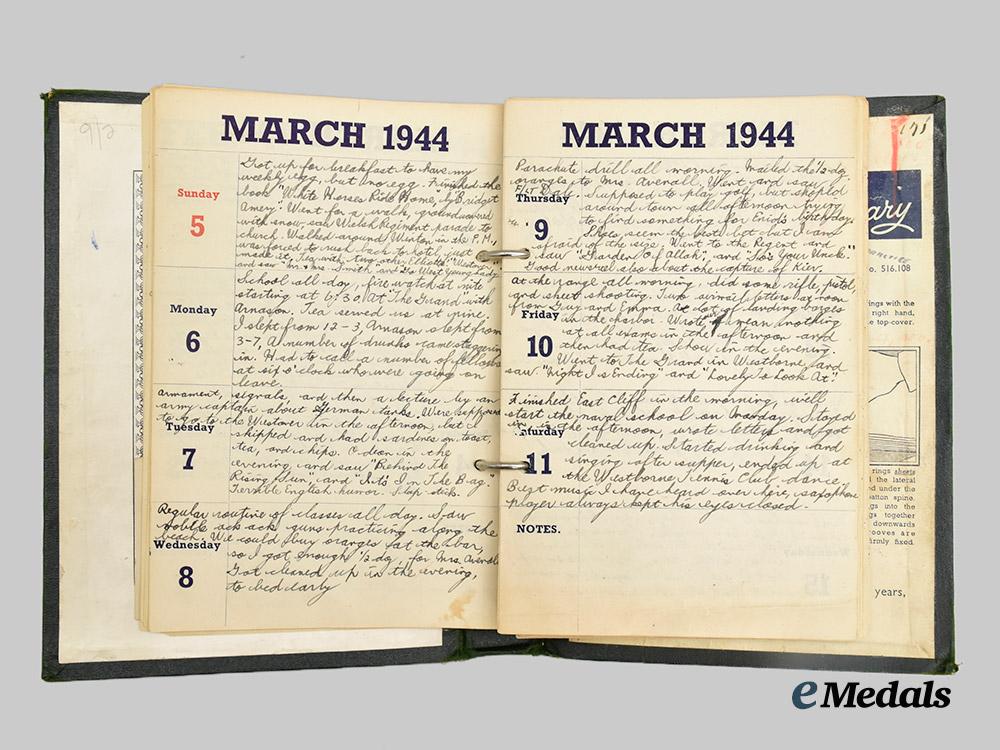 9/2
MARCH 1944
Got up for breakfast to have my
weekly egg, but no egg. Finished the
book "White Horses Ride Home, by Bridget
Amery". Went for a walk, ground covered
with snow, saw Welsh Regiment parade to
church. Walked around Winton in the P.M.,
was forced to rush back to hotel, just
made it. Tea with two other Elliotts. "Westover"
and saw "Mr & Mrs. Smith" and "Go West Young Lady"
Sunday
5
School all day, fire watch at nite
starting at 6:30 At The Grand with
Arnason. Tea served us at nine.
I slept from 12-3, Arnason slept from
3-7, A number of drunks came staggering
in. Had to call a number of fellows
at six o'clock who were going on
leave.
Monday
6
armament, signals, and then a lecture by an
army captain about German tanks. Were supposed
to go to the Westover in the afternoon, but I
skipped and had sardines on toast,
tea, and chips. Odeon in the
evening, and saw "Behind The
Rising Sun", and "It's In The Bag."
Terrible English humor. Slap stick.
Tuesday
7
Regular routine of classes all day. Saw
mobile ack ack guns practicing along the
beach. We could buy oranges at the bar,
so I got enough ½ dz. for Mrs. Averall
Got cleaned up in the evening,
to bed early
Wednesday
8
MARCH 1944
Parachute drill all morning. Mailed the ½ dz
oranges to Mrs. Averall, Went and saw
Supposed to play golf, but shopped
around town all afternoon trying
to find something for Enid's birthday.
seem the best bet but I am
afraid of the size. Went to the Regent and
saw "Garden Of Allah", and "So's Your Uncle."
Good newsreel also about the capture of Kiev.
Thursday
9
At the range all morning, did some rifle, pistol,
and skeet shooting. Two airmail letters by noon
from Guy and Emma. A lot of landing barges
in the harbor. Wrote mean nothing
at all exams in the afternoon and
then had tea. Show in the evening.
Went to The Grand in Westborne, and
saw "Night Is Ending" and "Lovely To Look At".
Friday
10
Finished East Cliff in the morning, we'll
start the naval school on Monday. Stayed
in, in the afternoon, wrote letters and got
cleaned up. Started drinking and
singing after supper, ended up at
the Westborne Tennis Club dance.
Best music I have heard over here, saxophone
player always kept his eyes closed.
Saturday
11
NOTES.
ary
o. 516.108
ings with the
right hand,
e top-cover.
rings sheets
the lateral
ed under the
atton spine.
gs into the
gs together
downwards
ooves are
irmly fixed.
years,
eMedals